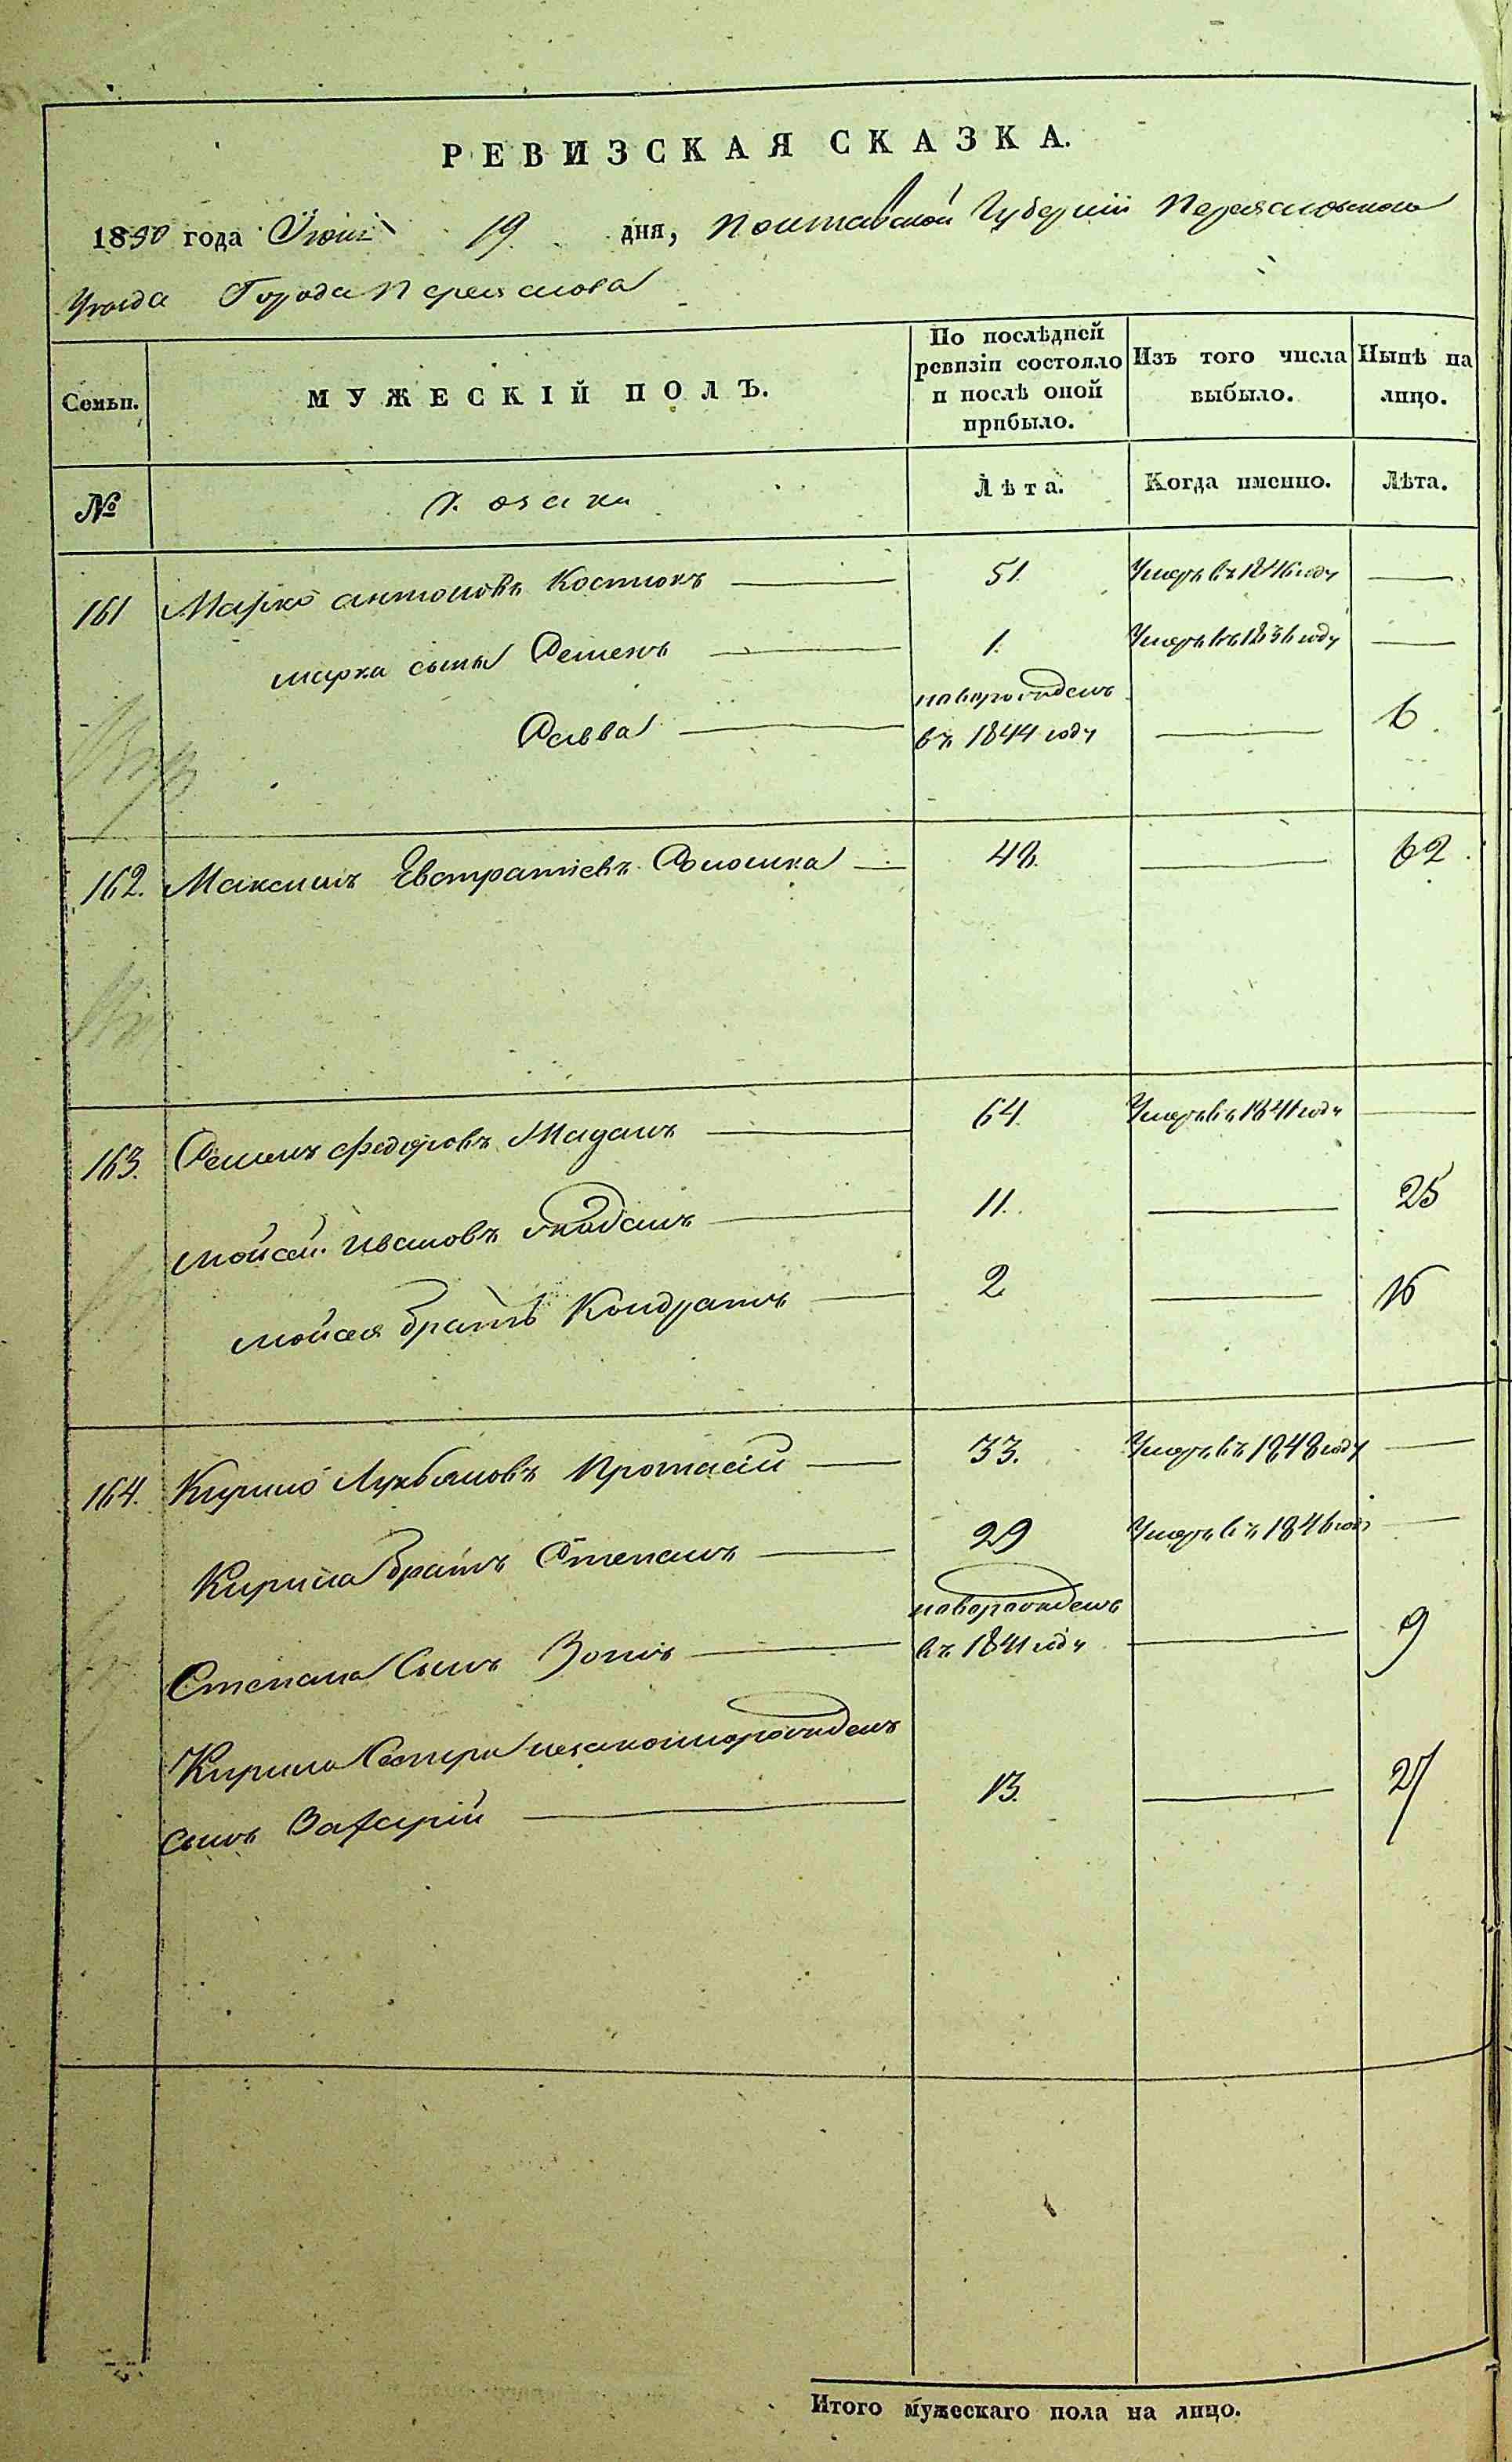 РЕВИЗСКАЯ СКАЗКА.
1850 года Іюня 19 дня, Полтавской Губерніи Переясловского
Уезда Города Переяслова
Семьи. МУЖЕСКІЙ ПОЛЪ. По послѣдней ревизіи состояло и послѣ оной прибыло. Изъ того числа выбыло. Нынѣ на лицо.
№ Козаки Лѣта. Когда именно. Лѣта.
161 Марко антоновъ Костюкъ 51. Умеръ въ 1846 году
марка сынъ Семенъ 1. Умеръ въ 1836 году
Савва новорожденъ въ 1844 году 6
162. Максимъ Евстратіевъ 48. 62
163. Семенъ Федоровъ 64. Умеръ въ 1841 году
Мойсей Ивановъ 11. 25
мойсея братъ Кондратъ 2 16
164. Кирило Лукьяновъ Протасій 33. Умеръ въ 1848 году
Кирила братъ Степанъ 29 Умеръ въ 1846 году
Степана Сынъ Зотъ новорожденъ въ 1841 году 9
Кирила Сестры незаконнорожденъ
сынъ Захарій 13. 27
Итого мужескаго пола на лицо.